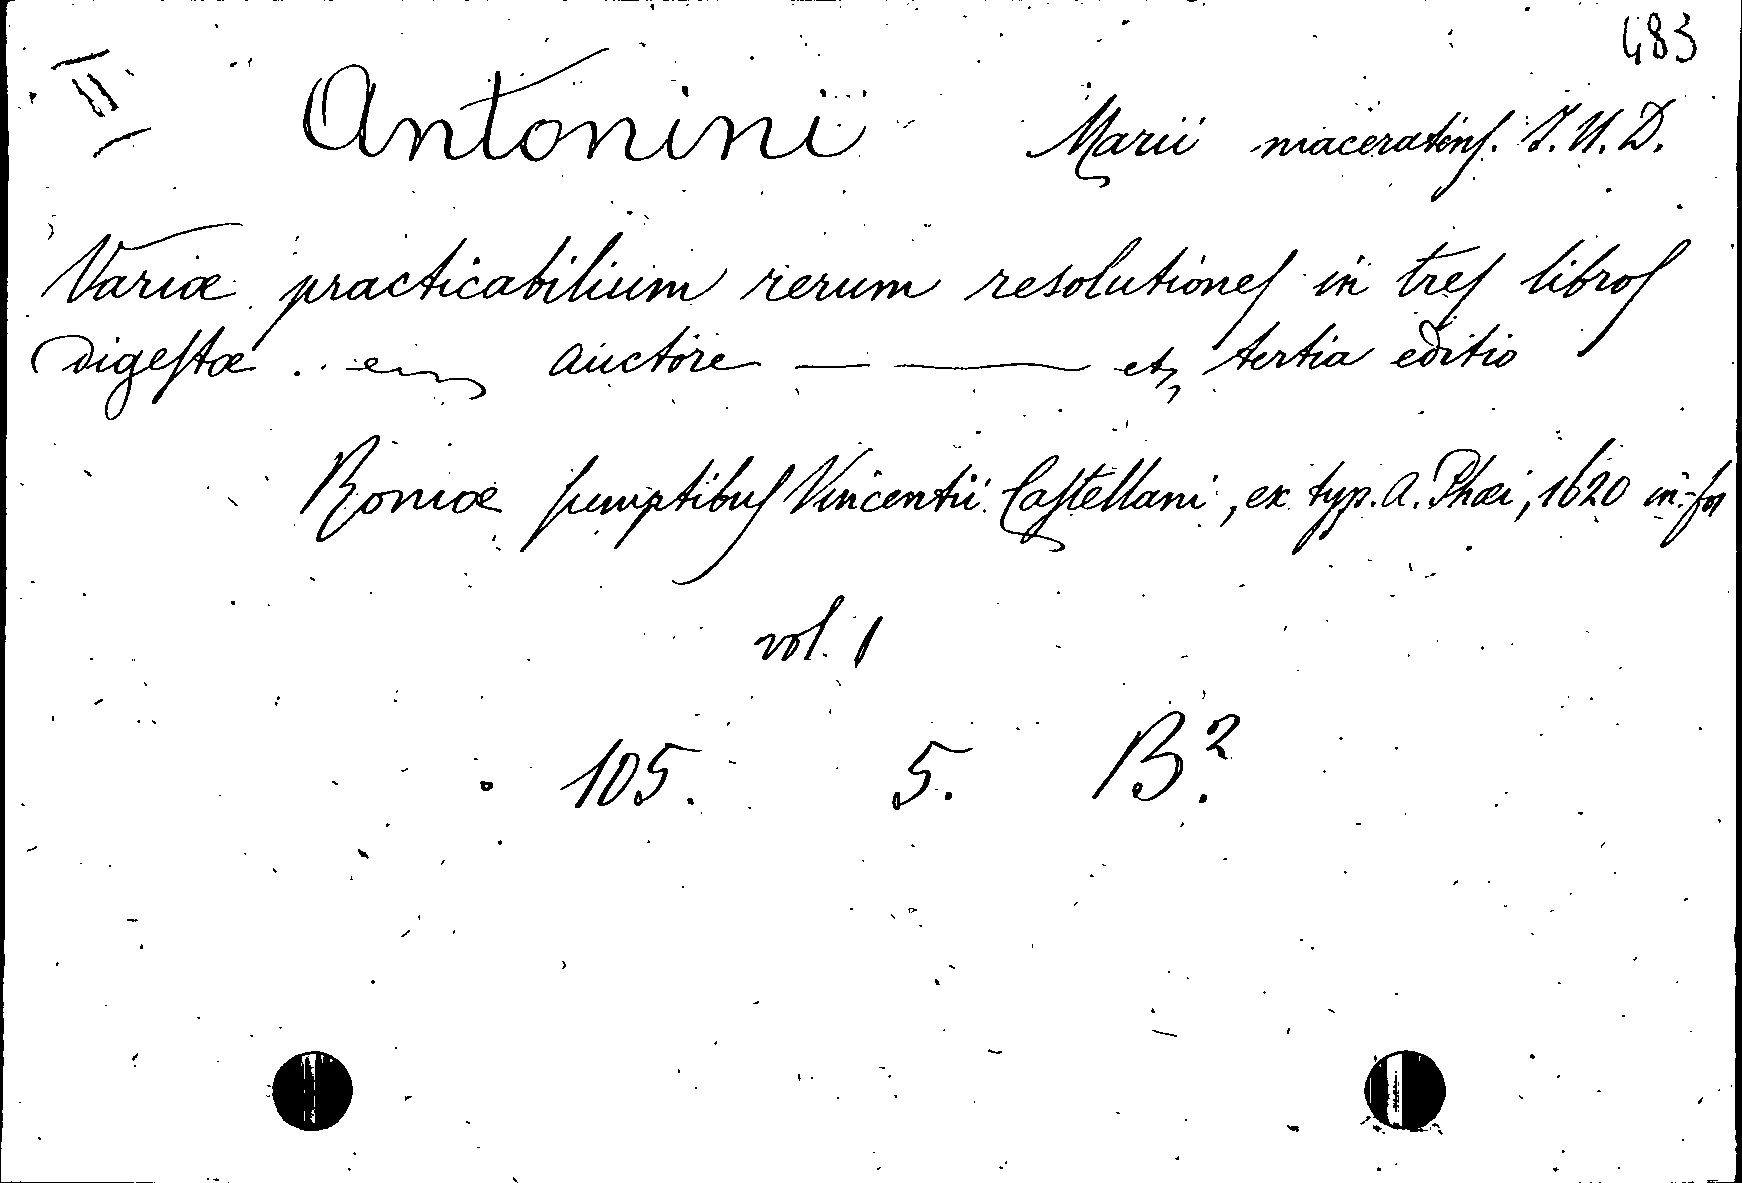 483
II
Antonini Marii maceratens. I. U. D.
Variæ practicabilium rerum resolutiones in tres libros
digestæ .. auctore — —— etc, tertia editio
Romæ sumptibus Vincentii Castellani, ex typ. A. Phæi, 1620 in-fol
vol. 1
105. 5. B².